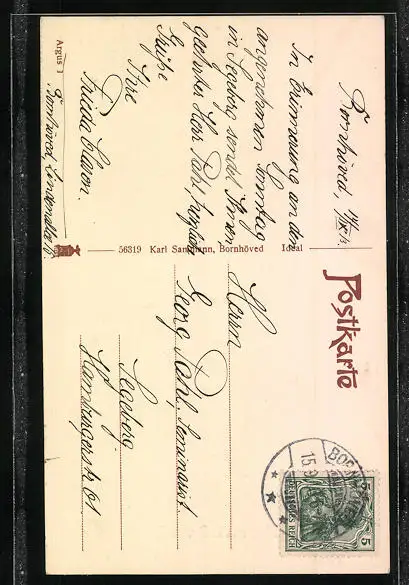 Bornhöved,
In Erinnerung an den
angenehmen Sonntag
in Segeberg sendet Ihnen
geehrter Herr Pahl, herzliche
Grüße
Ihre
Frieda
Bornhöved, Lindenallee
Argus 1
56319 Karl Sandmann, Bornhöved Ideal
Postkarte
Herrn
Georg Pahl, Seminarist.
Segeberg
Hamburgerstr 61.
5
DEUTSCHES REICH